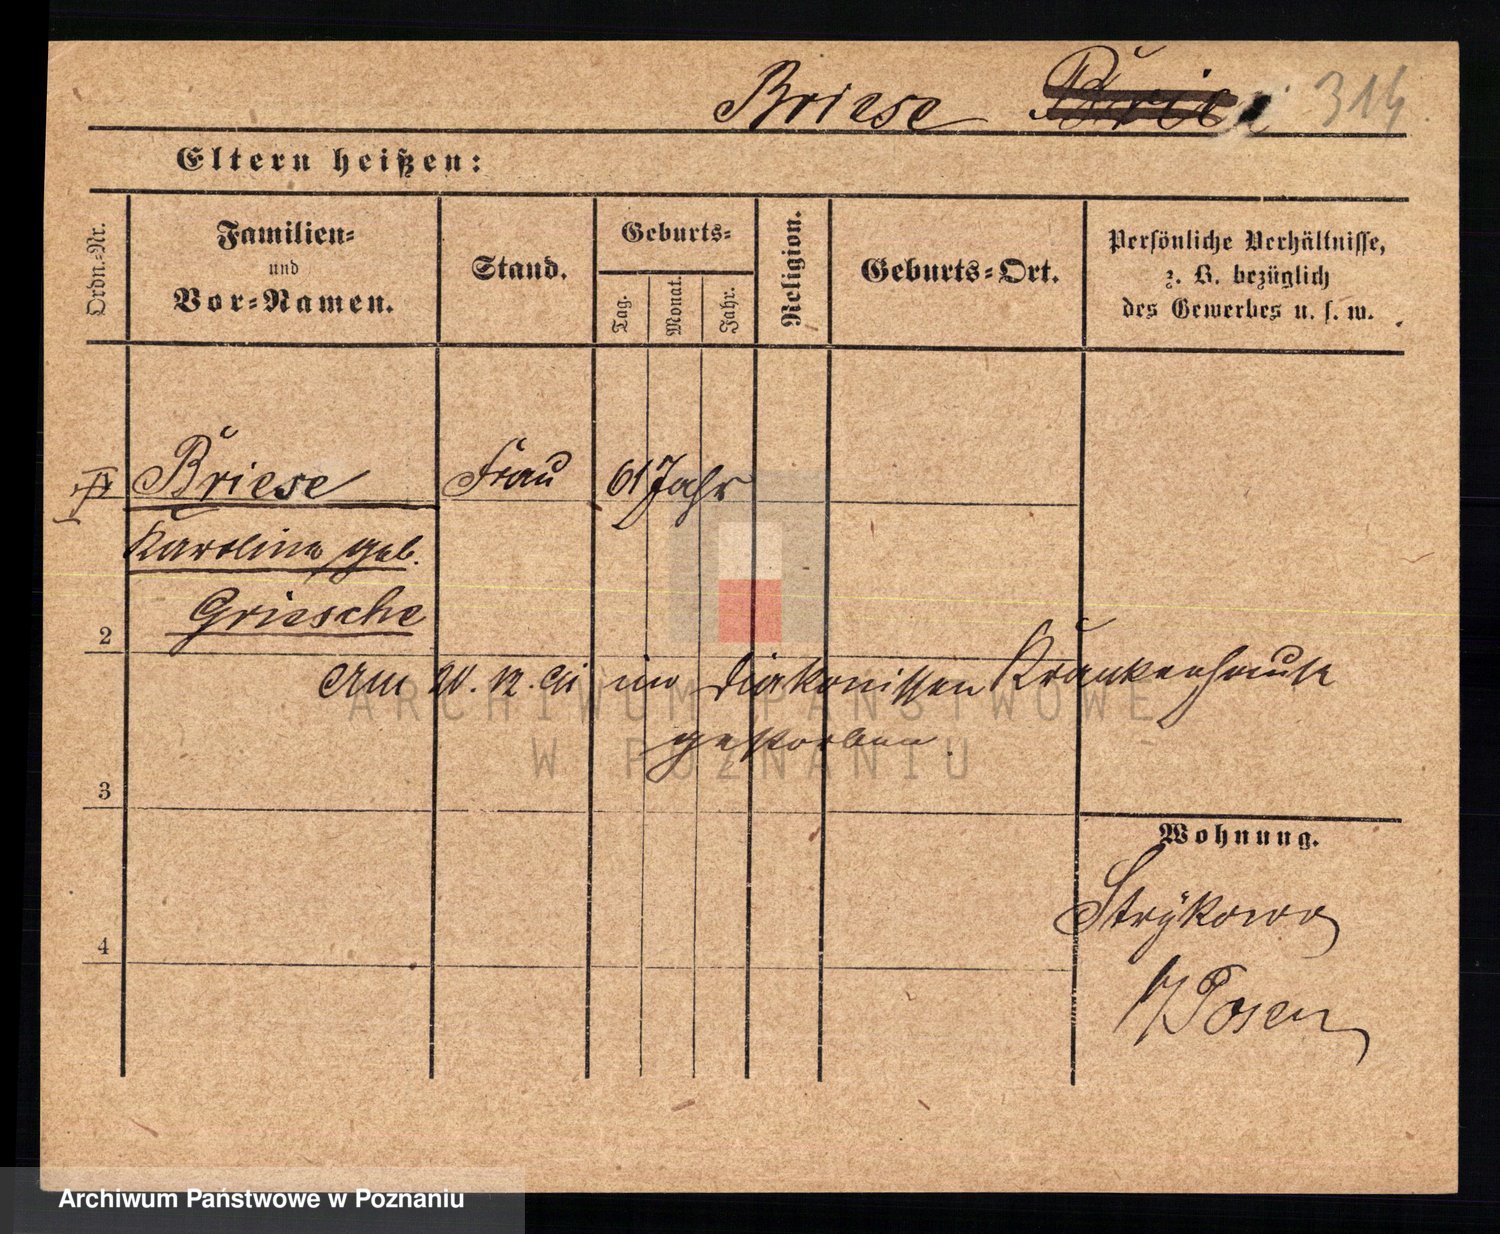 Briese 314
Eltern heißen:
Ordn.-Nr.
Familien-
und
Vor-Namen.
Stand.
Geburts-
Tag.
Monat.
Jahr.
Religion.
Geburts-Ort.
Persönliche Verhältnisse,
z. B. bezüglich
des Gewerbes u. s. w.
Briese Frau 61 Jahr
Karoline geb.
Griesche
2
Am 20. 12. 91 im Diakonissen Krankenhause
gestorben.
ARCHIWUM PAŃSTWOWE
W POZNANIU
3
Wohnung.
Strÿkowo
4
b/Posen
Archiwum Państwowe w Poznaniu